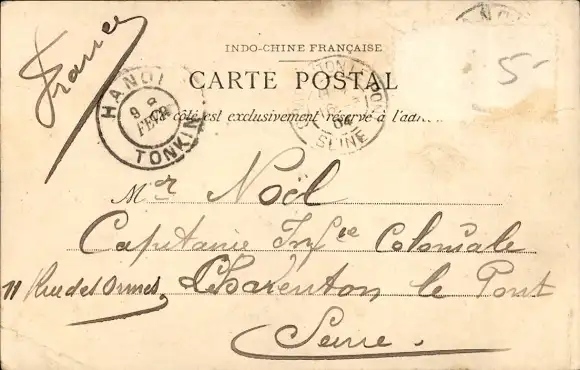 France
INDO-CHINE FRANÇAISE
CARTE POSTALE
côté est exclusivement réservé à l'adr
HANOI
9 8
FEVR
TONKIN
CHARENTON LE PONT
04
SEINE
5
Mr Noël
Capitaine Infie Coloniale
11 Rue des Ormes, Charenton le Pont
Seine.